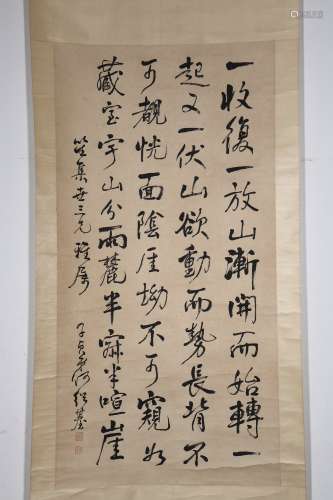 一收復一放山漸開而始轉一
起又一伏山欲動而勢長背不
可覩恍面陰厓坳不可窺如
藏室宇山分兩麓半寂半喧崖
笠集世三兄雅屬
子貞何紹基